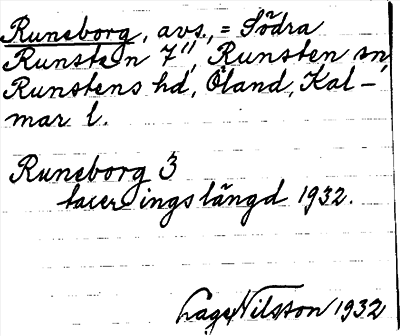 Runeborg, avs., = Södra
Runsten 7", Runsten sn,
Runstens hd, Öland, Kal-
mar l.
Runeborg 3
taxeringslängd 1932.
Lage Nilsson 1932